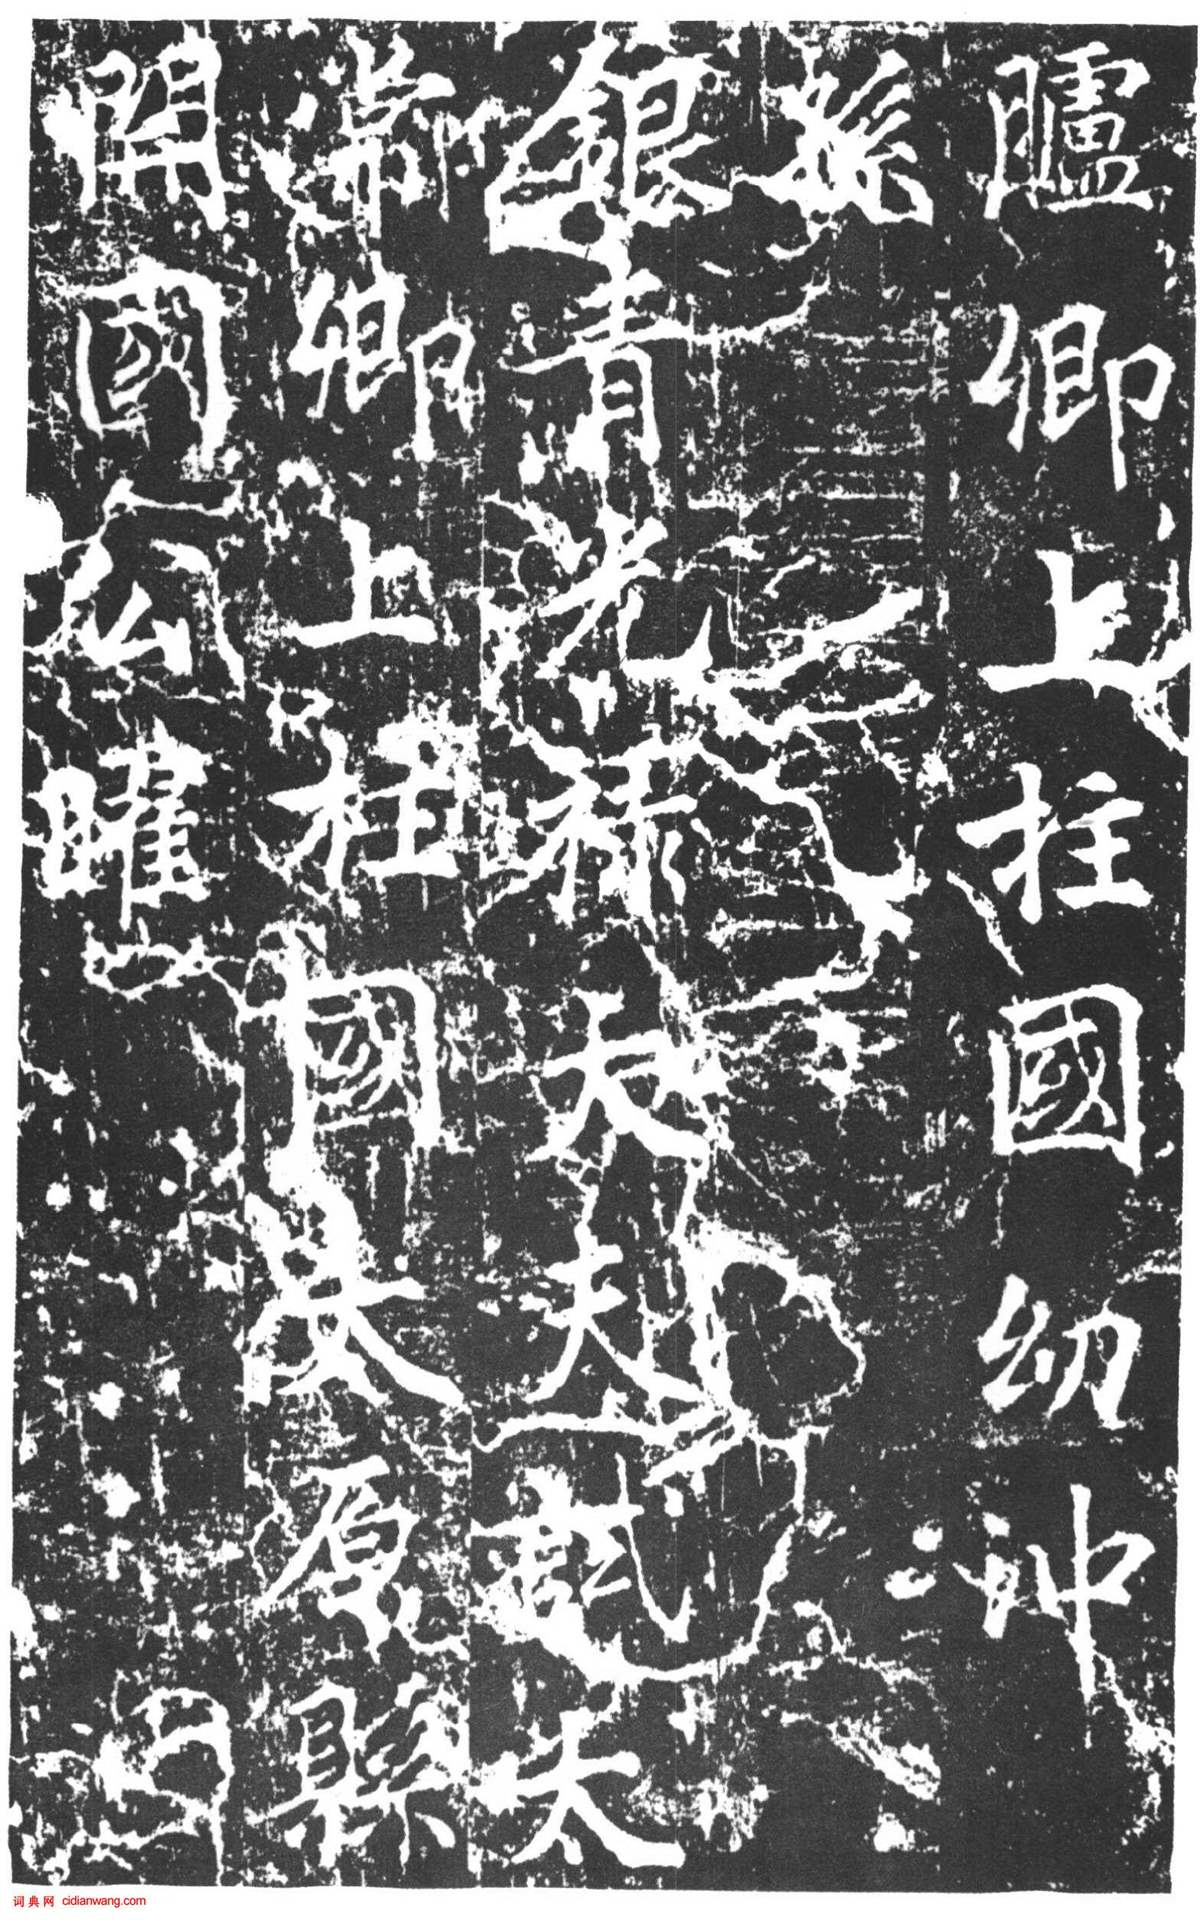 臚卿上柱國幼沖
孫
銀青光祿大夫試太
常卿上柱國太原縣
開國公曜
词典网 cidianwang.com